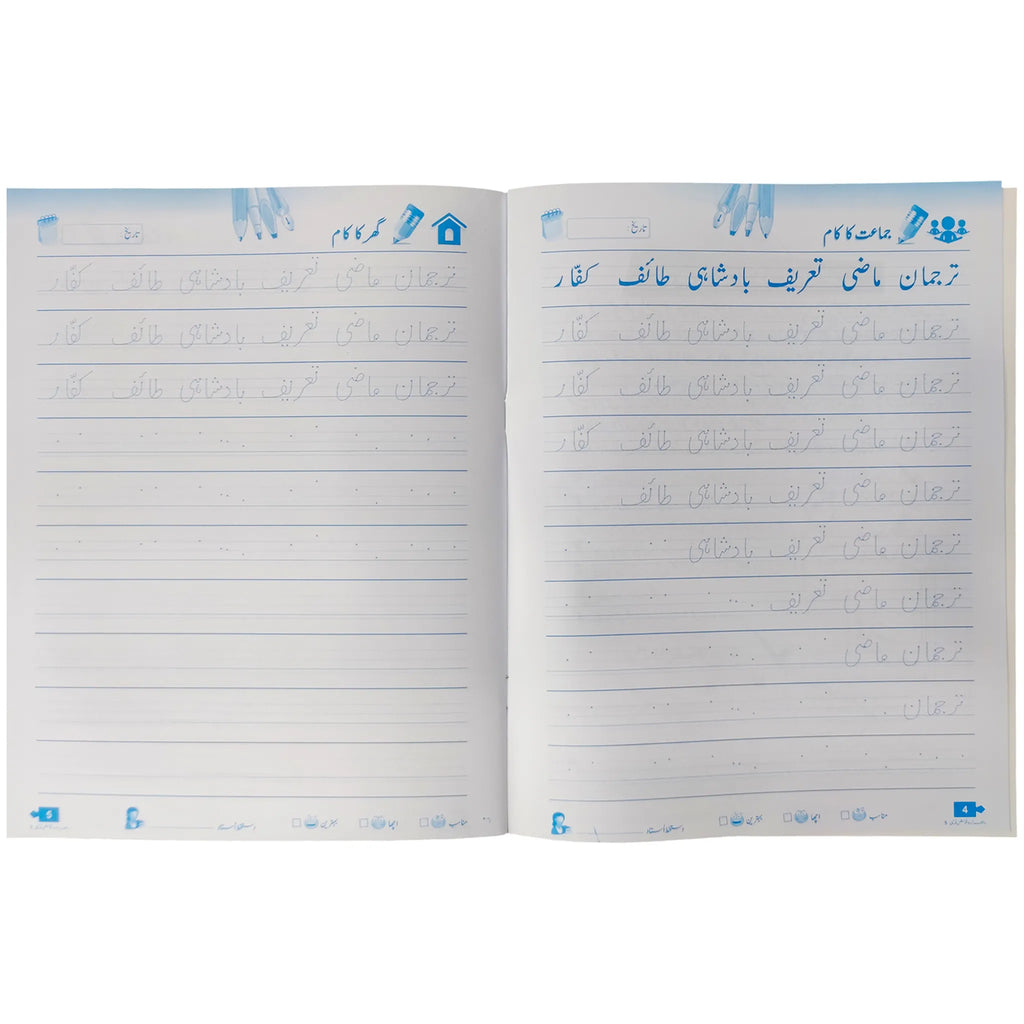 جماعت کا کام
تاریخ:
ترجمان ماضی تعریف بادشاہی طائف کفّار
ترجمان ماضی تعریف بادشاہی طائف کفّار
ترجمان ماضی تعریف بادشاہی طائف کفّار
ترجمان ماضی تعریف بادشاہی طائف کفّار
ترجمان ماضی تعریف بادشاہی طائف
ترجمان ماضی تعریف بادشاہی
ترجمان ماضی تعریف
ترجمان ماضی
ترجمان
مناسب اچھا بہترین دستخط استاد
4
گھر کا کام
تاریخ:
ترجمان ماضی تعریف بادشاہی طائف کفّار
ترجمان ماضی تعریف بادشاہی طائف کفّار
ترجمان ماضی تعریف بادشاہی طائف کفّار
مناسب اچھا بہترین دستخط استاد
5